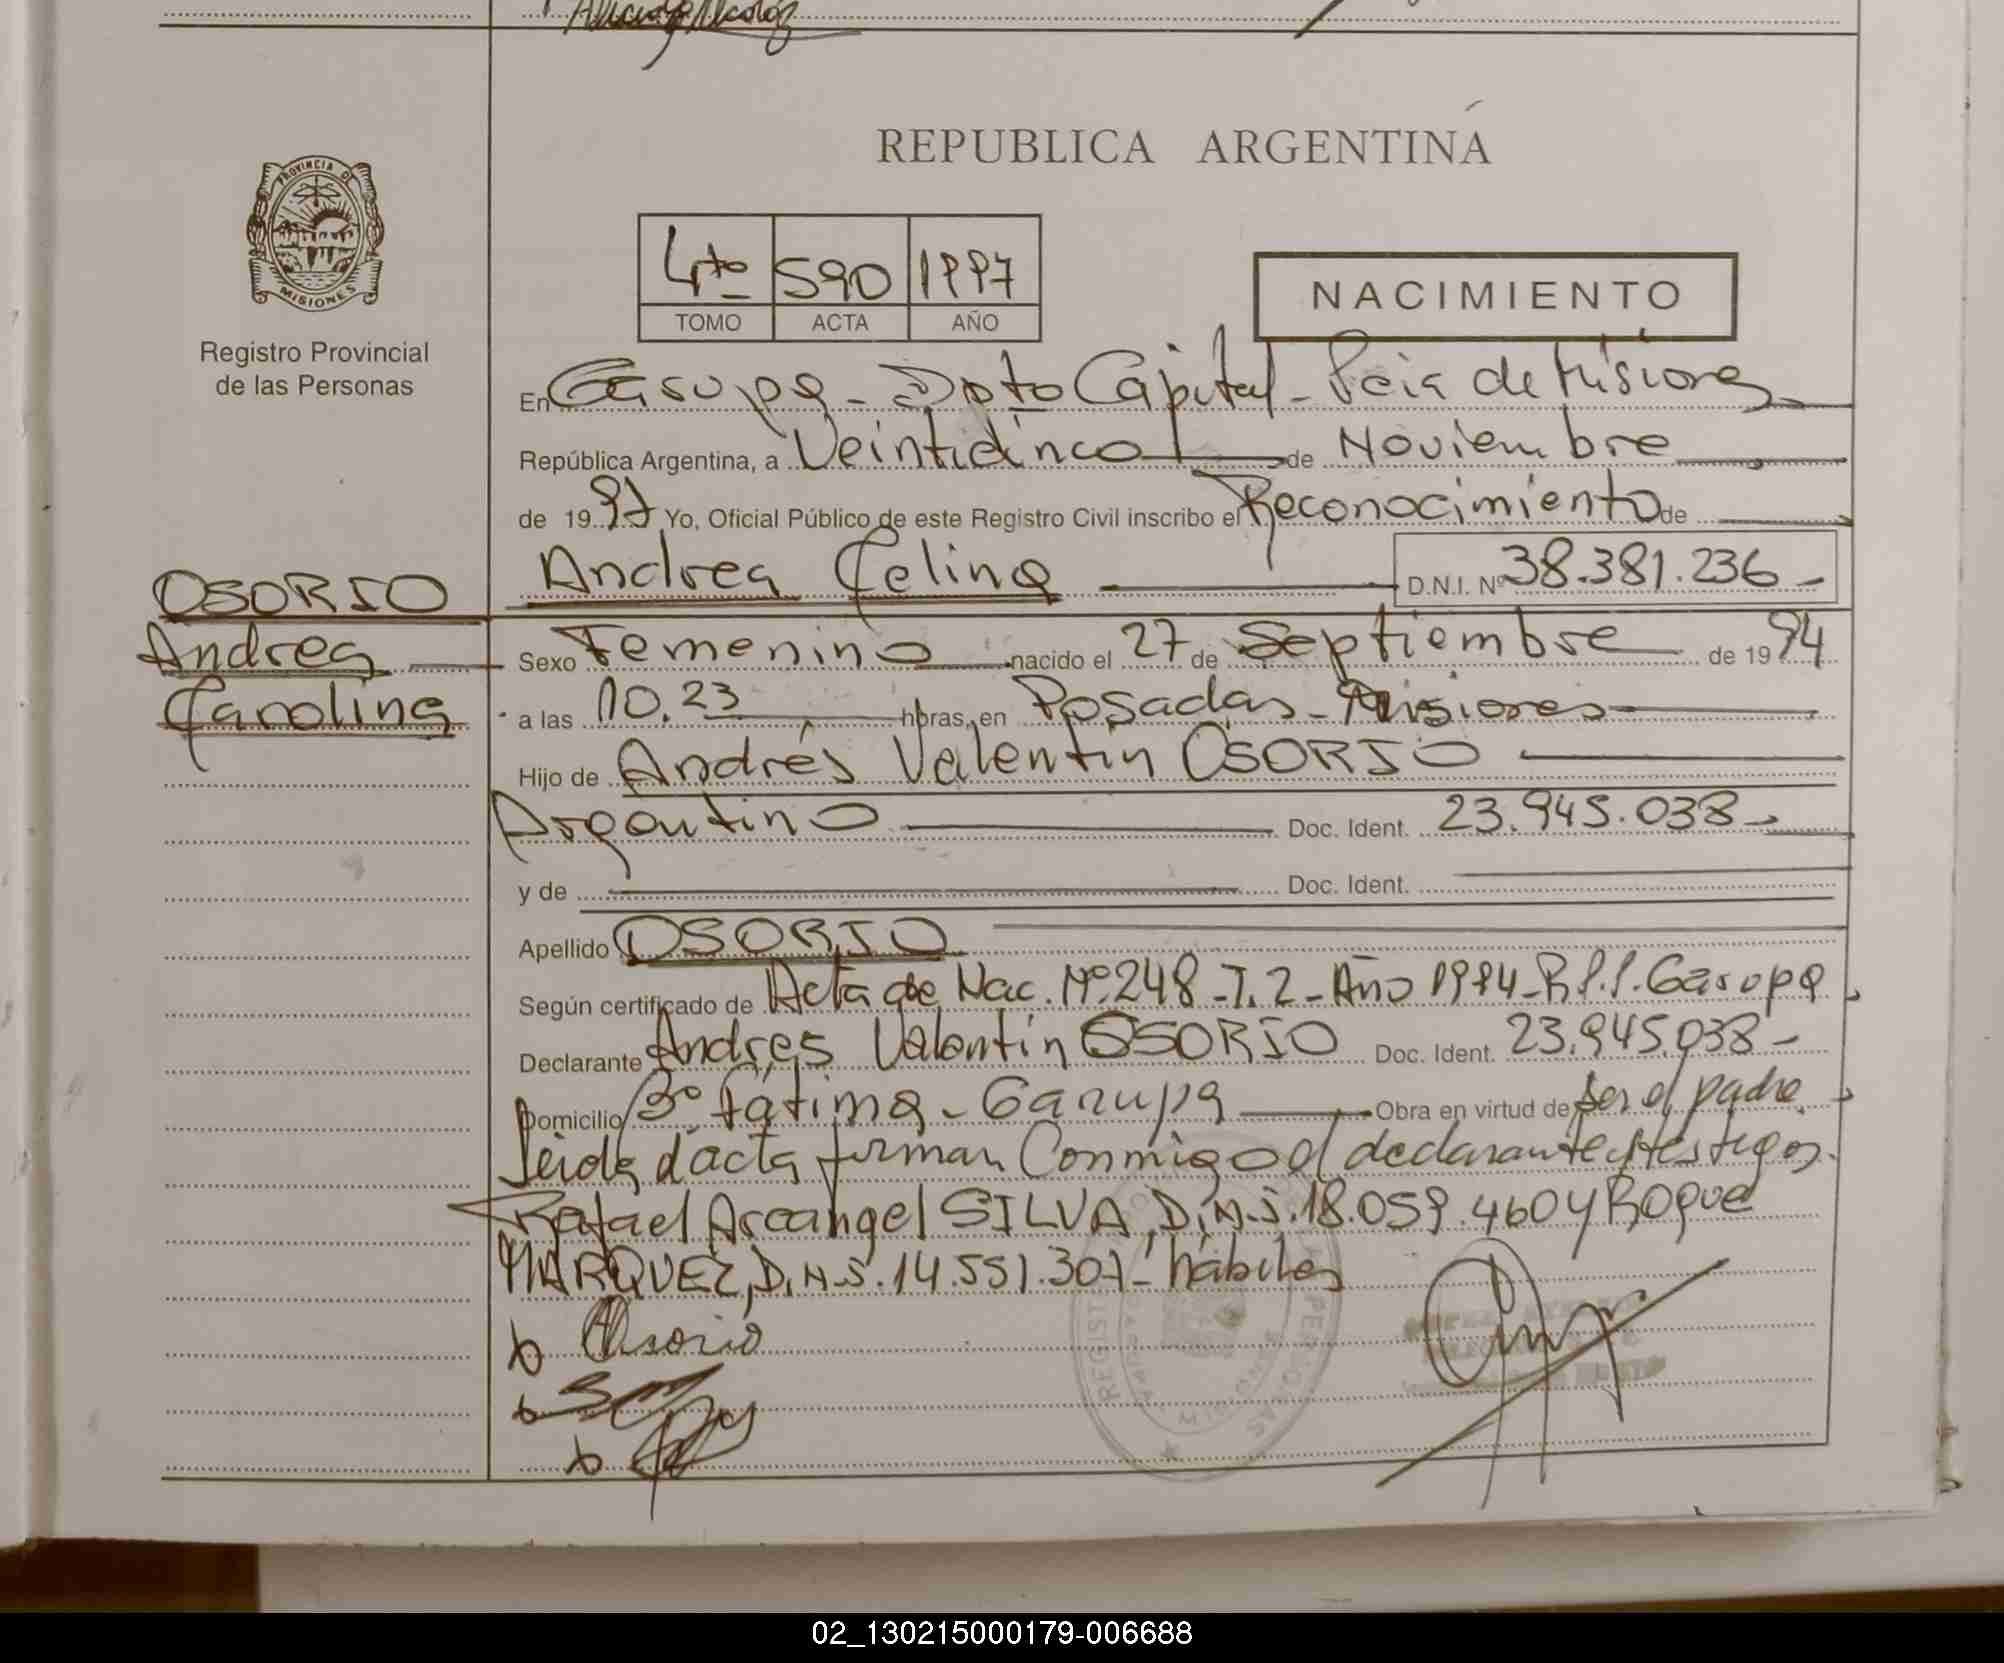 REPUBLICA ARGENTINA
PROVINCIA DE
MISIONES
Registro Provincial
de las Personas
4to 590 1997
TOMO ACTA AÑO
NACIMIENTO
En Garupa - Dpto Capital - Pcia de Misiones
República Argentina, a Veinticinco de Noviembre
de 1997 Yo, Oficial Público de este Registro Civil inscribo el Reconocimiento de
OSORIO
Andrea
Carolina
Andrea Celina D.N.I. Nº 38.381.236 -
Sexo Femenino nacido el 27 de Septiembre de 1994
a las 10.23 horas, en Posadas - Misiones
Hijo de Andrés Valentín OSORIO
Argentino Doc. Ident. 23.945.038 -
y de Doc. Ident.
Apellido OSORIO
Según certificado de Acta de Nac. Nº 248 - T. 2 - Año 1994 - R.P.P. Garupa
Declarante Andrés Valentín OSORIO Doc. Ident. 23.945.038 -
Domicilio Bº Fátima - Garupa Obra en virtud de ser el padre
Leida el acta firman Conmigo el declarante y testigos
Rafael Arcangel SILVA, D.N.I. 18.059.460 y Roque
MARQUEZ, D.N.I. 14.551.307 - hábiles
Osorio
02_130215000179-006688